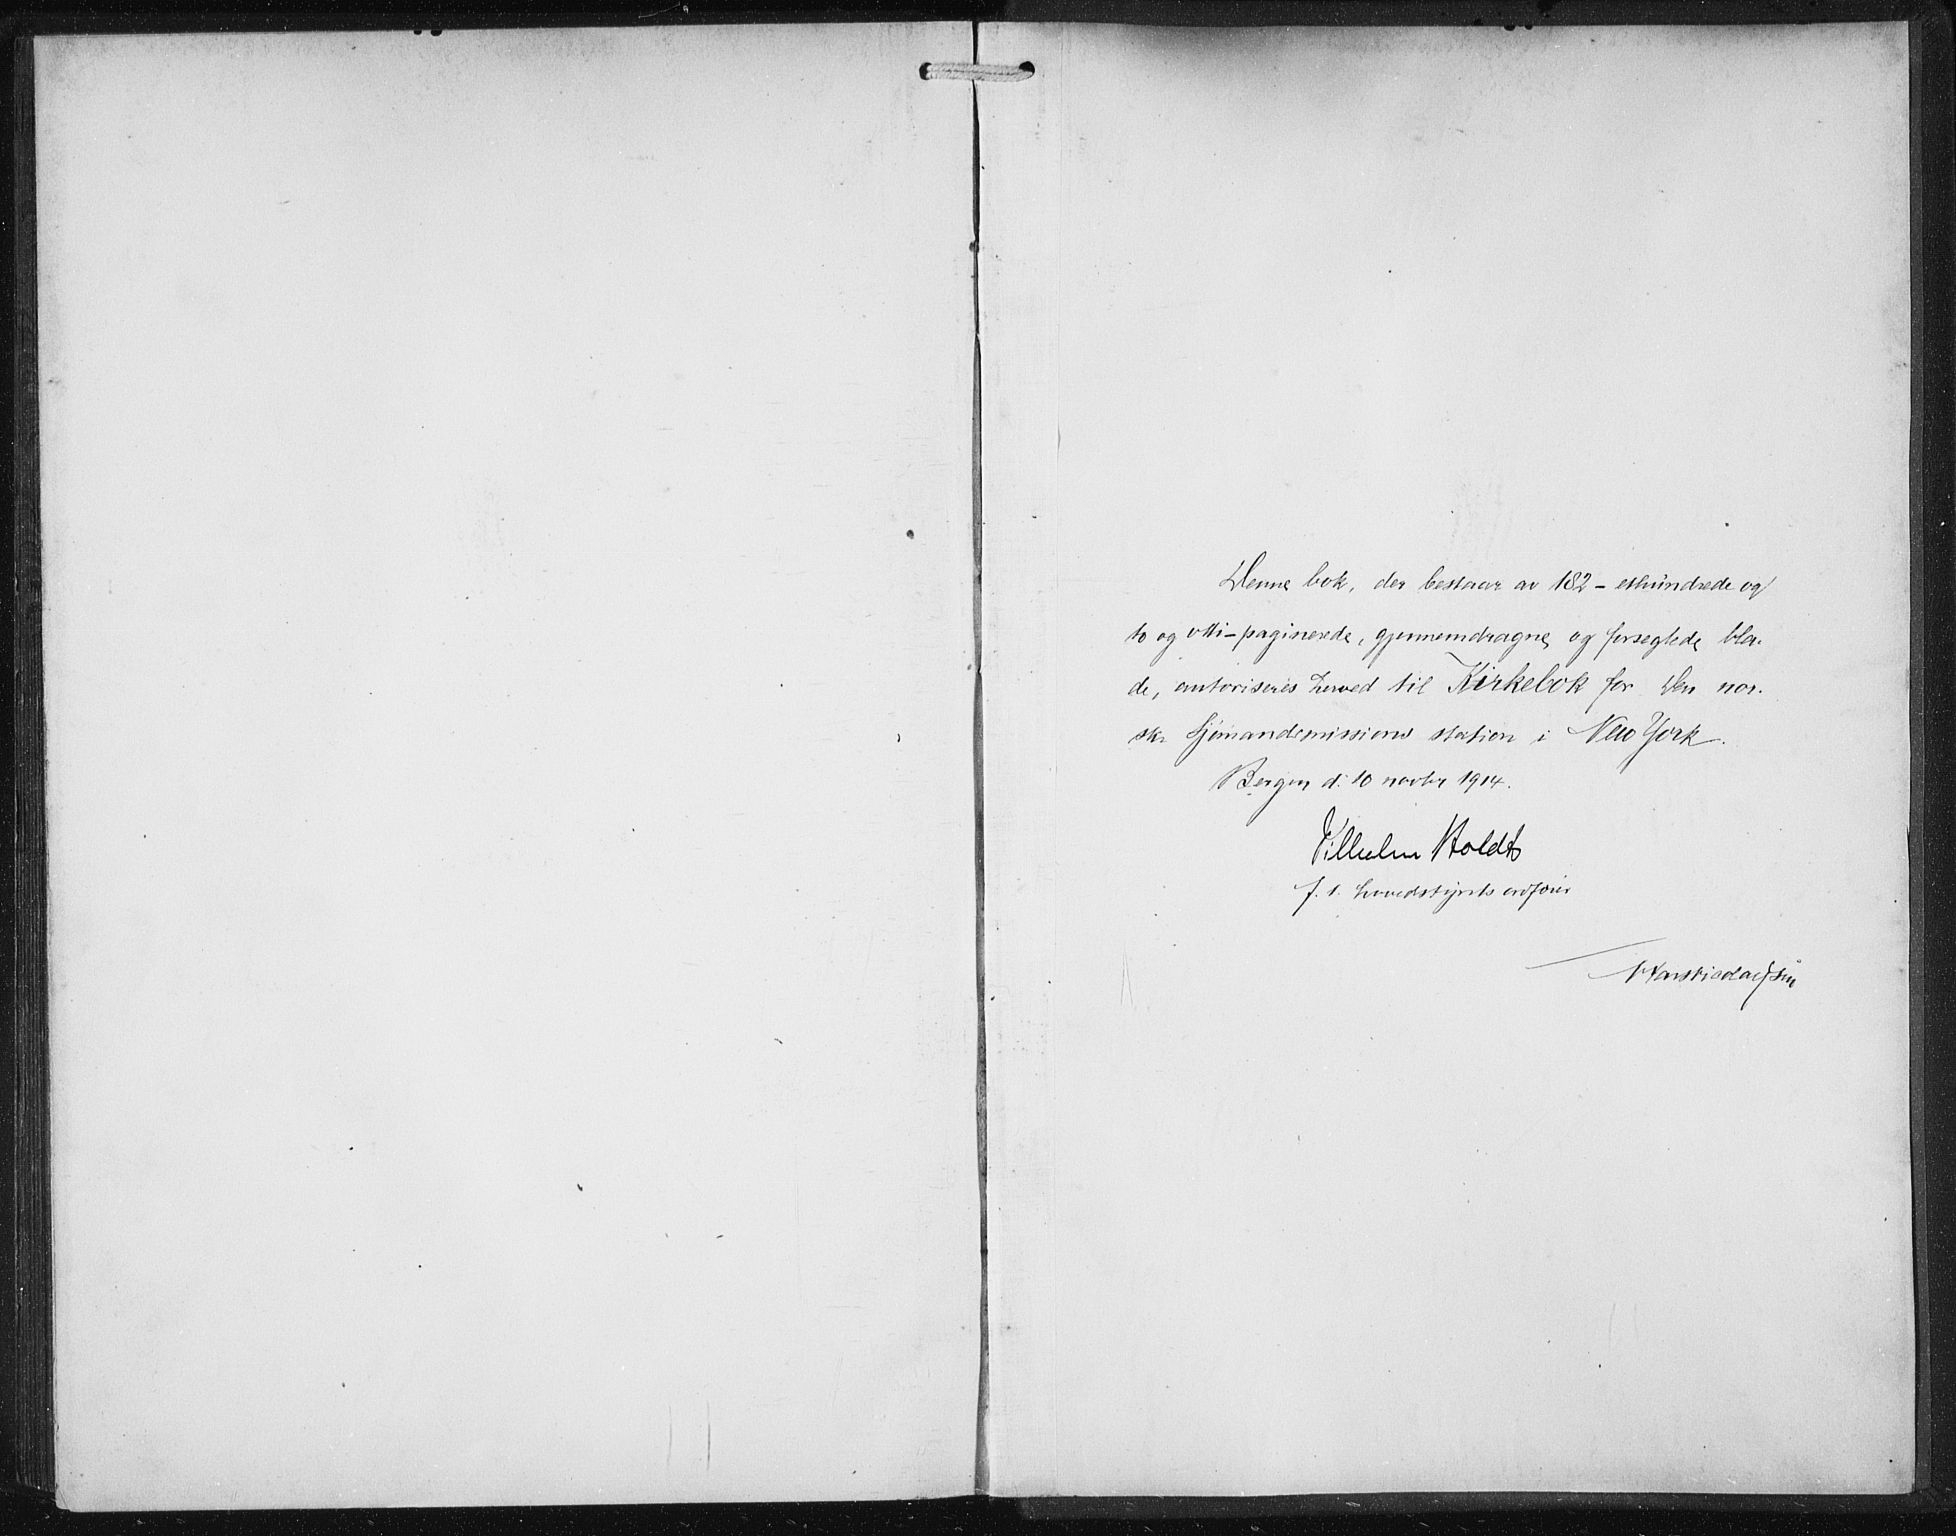 Denne bok, der bestaar av 182 – ethundrede og
to og otti – paginerede, gjennemdragne og forseglede bla-
de, autoriseres herved til Kirkebok for Den nor-
ske Sjømandsmissions station i New York.
Bergen d. 10 novbr 1914.
Vilhelm Holdt
f. t. hovedstyrets ordfører